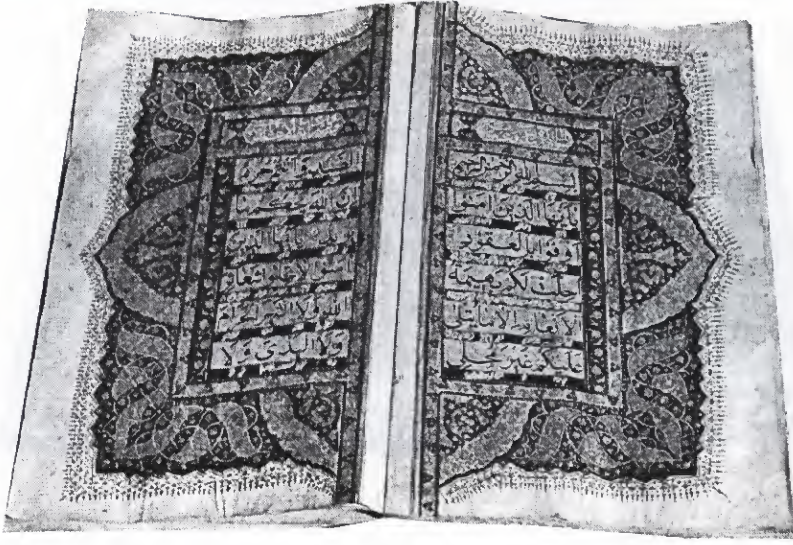 بسم الله الرحمن الرحيم
يايها الذين امنوا
اوفوا بالعقود
احلت لكم بهيمة
الانعام الا ما يتلى
عليكم غير محلي
الصيد وانتم حرم
ان الله يحكم ما
يريد يايها الذين
امنوا لا تحلوا شعائر
الله ولا الشهر الحرام
ولا الهدي ولا